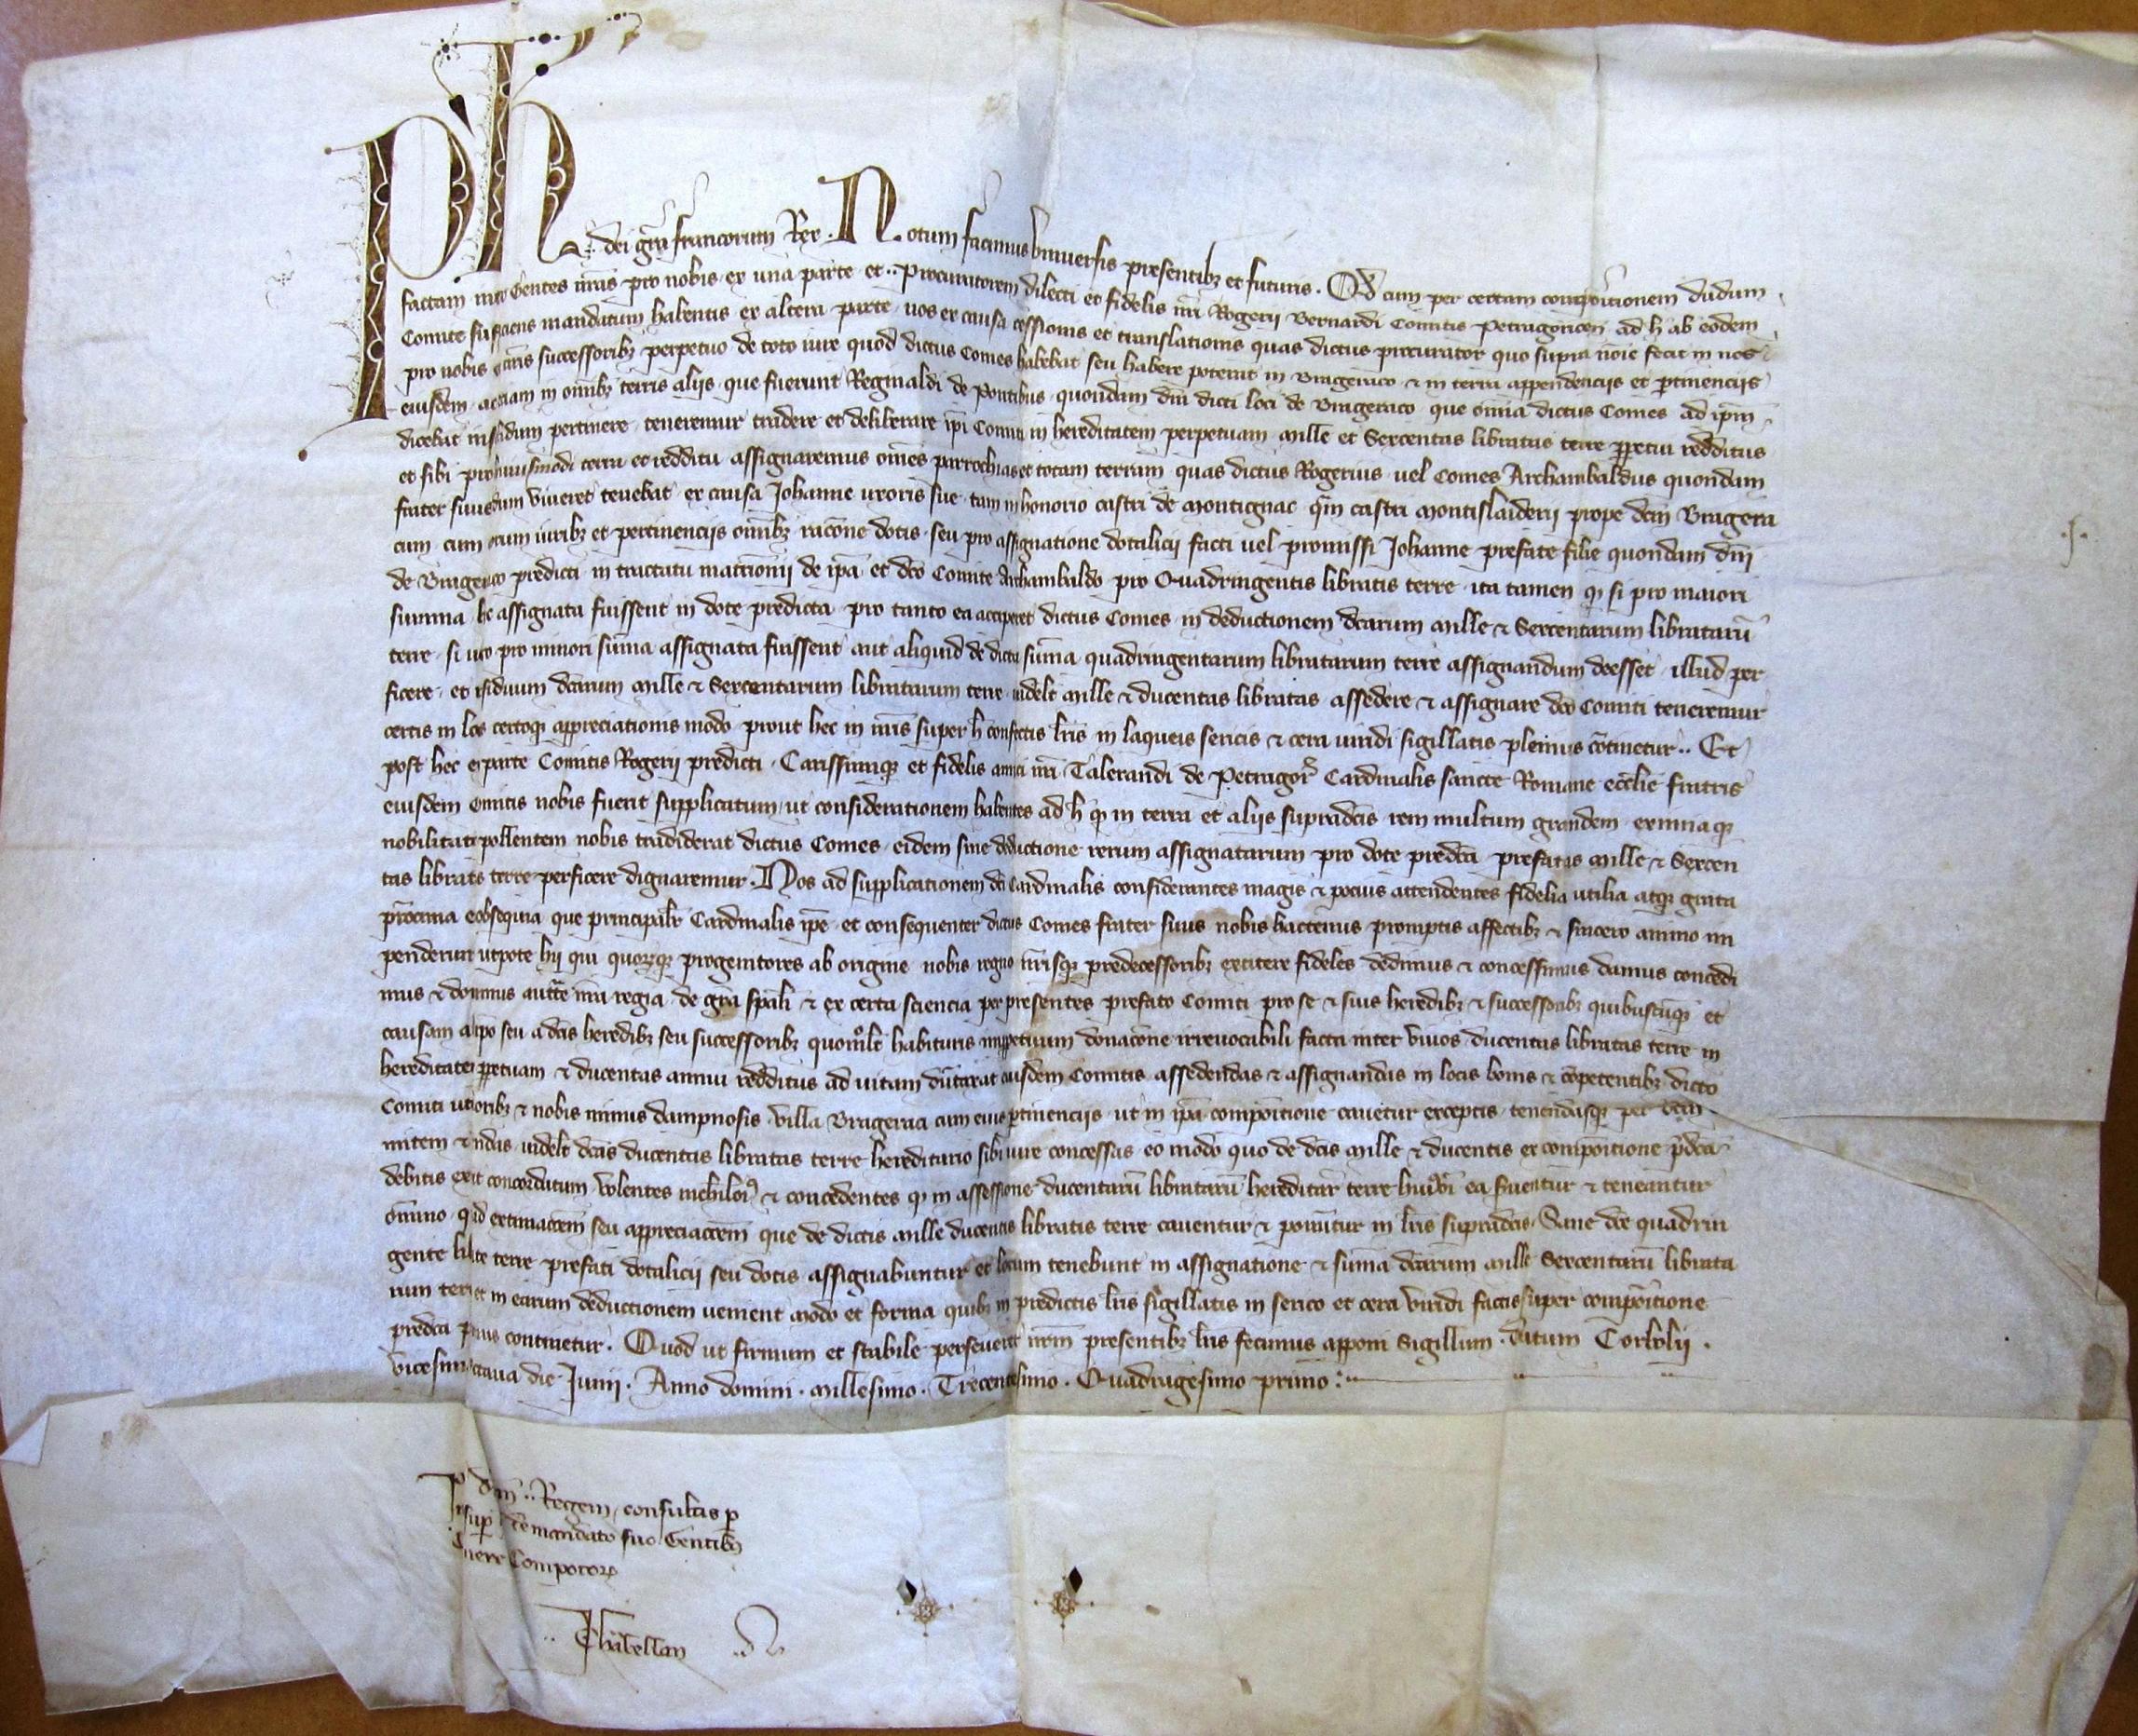 Ph dei gra francorum Rex. Notum facimus universis presentibz et futuris. Qd cum per certam compositionem dudum
factam inter Gentes nras pro nobis ex una parte et .. Procuratorem dilecti et fidelis nri Rogerii Bernardi Comitis Petragoricen ad h ab eodem
Comite sufficiens mandatum habentis ex altera parte nos ex causa cessionis et translationis quas dictus procurator quo supra noie fecit in nos
pro nobis nris successoribz perpetuo de toto iure quod dictus Comes habebat seu habere poterat in Brageriaco & in terra appendenciis et ptinenciis
eiusdem ac etiam in omibz terris aliis que fuerunt Reginaldi de Pontibus quondam dni dicti loci de Brageraco que omia dictus Comes ad ipm
dicebat in solidum pertinere teneremur tradere et deliberare ipi Comiti in hereditatem perpetuam mille et Sexcentas libratas terre ppetui redditus
et sibi pro huiusmodi terra et redditu assignaremus omes parrochias et totam terram quas dictus Rogerius vel Comes Archambaldus quondam
frater suus dum viveret tenebat ex causa Johanne uxoris sue tam in honorio castri de Montignac qm castri Montislaiderii prope dcm Bragera
cum cum eorum iuribz et pertinenciis omibz racone dotis seu pro assignatione dotalicii facti vel promissi Johanne prefate filie quondam dni
de Brageraco predicti in tractatu matrionii de ipa et dco Comite Archambaldo pro Quadringentis libratis terre ita tamen q si pro maiori
summa hec assignata fuissent in dote predicta pro tanto ea acciperet dictus Comes in deductionem dcarum mille & Sexcentarum libratarum
terre si vero pro minori suma assignata fuissent aut aliquid de dicta suma quadringentarum libratarum terre assignandum deesset illud per
ficere et residuum dcarum mille & Sexcentarum libratarum terre videlt mille & ducentas libratas assedere & assignare dco Comiti teneremur
certis in locis certoq appreciationis modo prout hec in nris super h confectis lris in laqueis sericis & cera viridi sigillatis plenius cotinetur .. Et
post hec ex parte Comitis Rogerii predicti Carissimiq et fidelis amici nri Talerandi de Petragor Cardinalis sancte Romane ecclie fratris
eiusdem Comitis nobis fuerit supplicatum ut considerationem habentes ad h q in terra et aliis supradcis rem multum grandem eximiaq
nobilitate pollentem nobis tradiderat dictus Comes eidem sine deductione rerum assignatarum pro dote predca prefatas mille & Sexcen
tas libratas terre perficere dignaremur. Nos ad supplicationem dci Cardinalis considerantes magis & pocius attendentes fidelia utilia atq grata
obsequia que principalr Cardinalis ipe et consequenter dictus Comes frater suus nobis hactenus promptis affectibz & sincero animo im
penderunt utpote hii qui quorq progenitores ab origine nobis regno nrisq predecessoribz extitere fideles dedimus & concessimus damus concedi
mus & donamus autte nra regia de gra spali & ex certa sciencia per presentes prefato Comiti pro se & suis heredibz & successoribz quibuscuq et
causam ab ipo seu a dcis heredibz seu successoribz quomolt habituris imppetuum donacone irrevocabili facta inter vivos ducentas libratas terre in
hereditatem ppetuam & ducentas annui redditus ad vitam dutaxat eiusdem Comitis assedendas & assignandas in locis bonis & copetentibz dicto
Comiti utilioribz & nobis minus dampnosis villa Brageraci cum eius ptinenciis ut in ipa compoitione cavetur exceptis tenendasq per dcm
mitem videlt dcas ducentas libratas terre hereditario sibi iure concessas eo modo quo de dcis mille & ducentis ex compoitione pdca
debitis exit concordatum volentes & concedentes q in assessione ducentaru librataru hereditar terre ea sventur & teneantur
omino extimacoem seu appreciacoem que de dictis mille ducentis libratis terre caventur & ponutur in lris supradcis. Sane dce quadrin
gente librate terre prefati dotalicii seu dotis assignabuntur et locum tenebunt in assignatione & suma dcarum mille Sexcentaru librata
rum terre et in earum deductionem venient modo et forma quibz in predictis lris sigillatis in serico et cera viridi factis super compoitione
predca plenius continetur. Quod ut firmum et stabile perseveret nrm presentibz lris fecimus apponi Sigillum. Datum Corbolii.
vicesima octava die Junii. Anno domini. Millesimo. Trecentesimo. Quadragesimo primo:
P dnm .. Regem, consultis p
insup de mandato suo Gentibz
Camere Compotorz
.. Chabellan